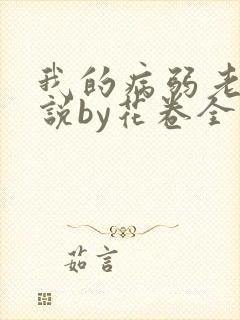 我的病弱老
説by花卷全
茹言